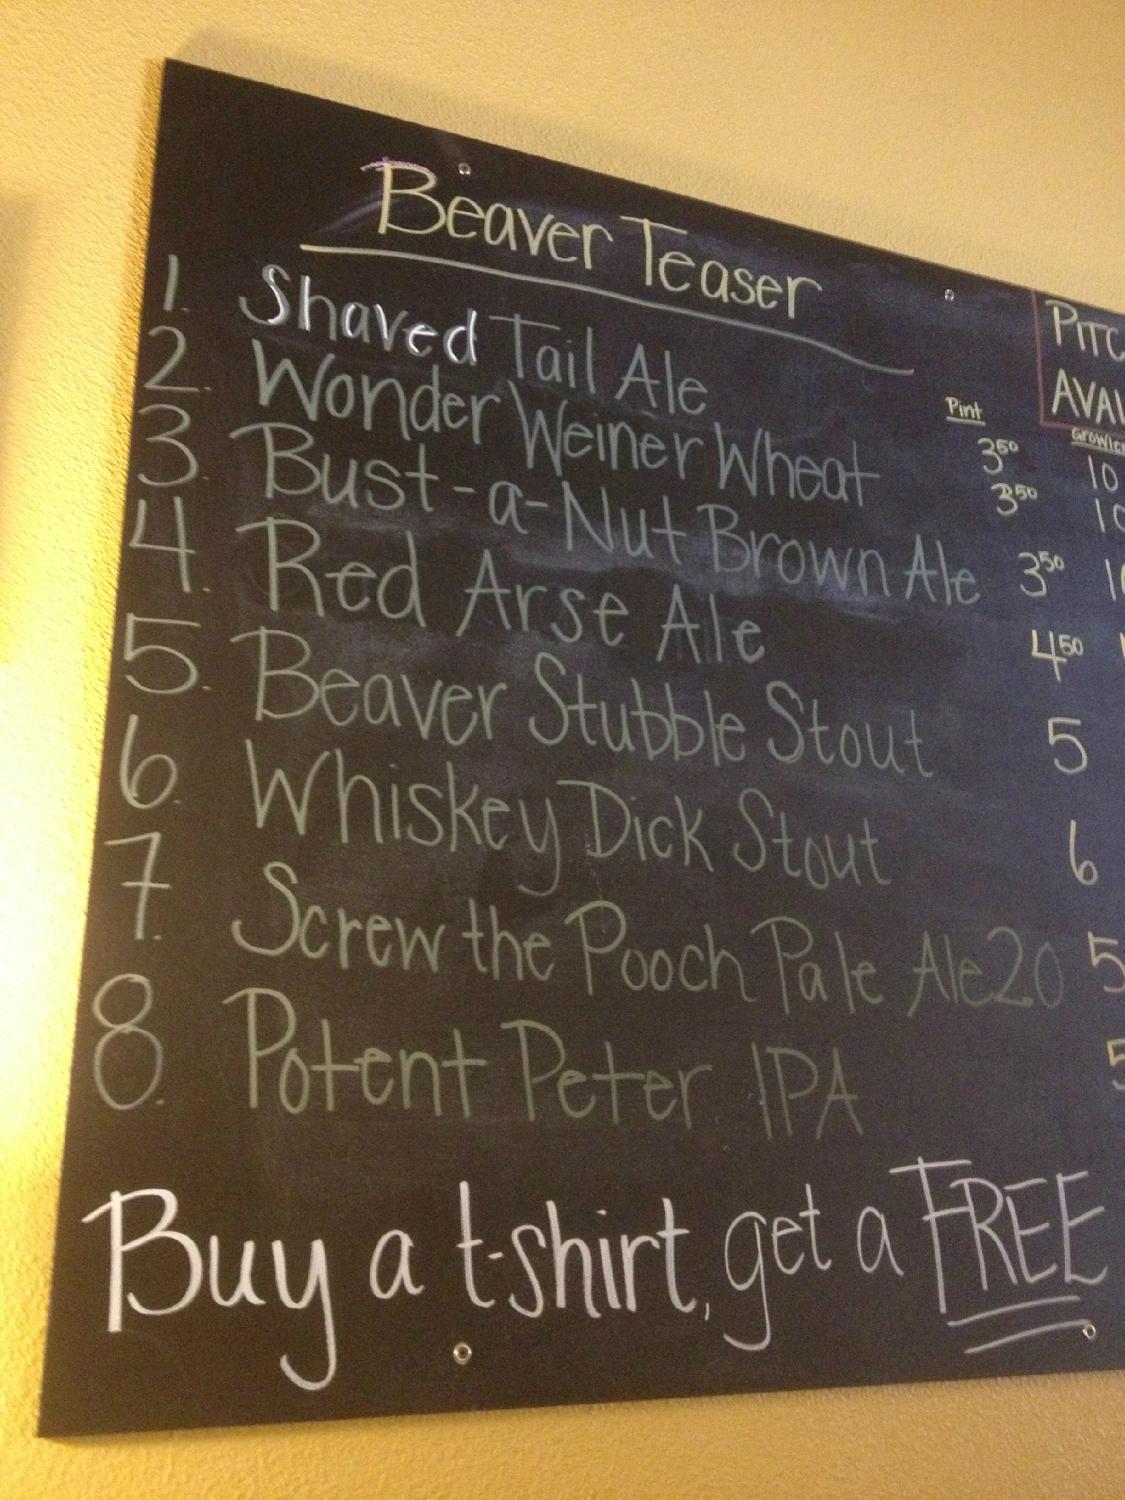 Beaver Teaser
PITC
AVAI
Pint Growler
1. Shaved Tail Ale 3⁵⁰ 10
2. Wonder Weiner Wheat 3⁵⁰ 10
3. Bust-a-Nut Brown Ale 3⁵⁰ 10
4. Red Arse Ale 4⁵⁰
5. Beaver Stubble Stout 5
6. Whiskey Dick Stout 6
7. Screw the Pooch Pale Ale 2.0 5
8. Potent Peter IPA 5
Buy a t-shirt, get a FREE